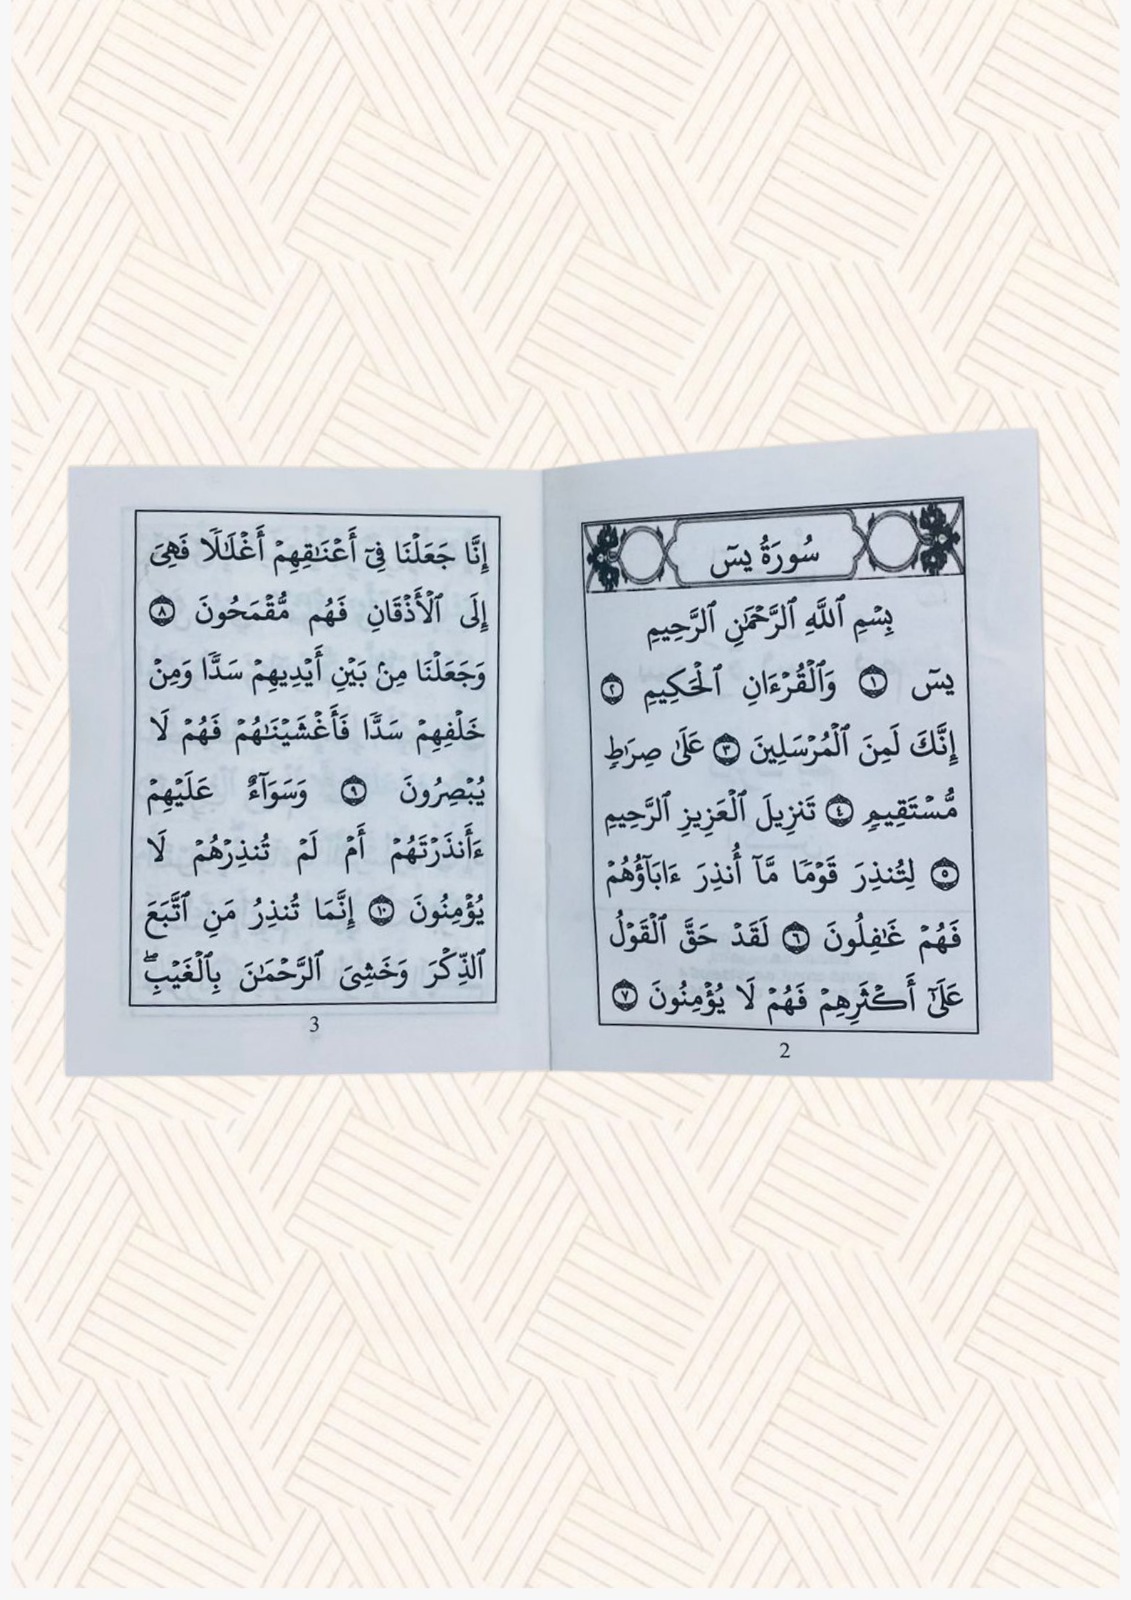 سُورَةُ يسٓ
بِسۡمِ ٱللَّهِ ٱلرَّحۡمَٰنِ ٱلرَّحِيمِ
يسٓ ١ وَٱلۡقُرۡءَانِ ٱلۡحَكِيمِ ٢
إِنَّكَ لَمِنَ ٱلۡمُرۡسَلِينَ ٣ عَلَىٰ صِرَٰطٖ
مُّسۡتَقِيمٖ ٤ تَنزِيلَ ٱلۡعَزِيزِ ٱلرَّحِيمِ
٥ لِتُنذِرَ قَوۡمٗا مَّآ أُنذِرَ ءَابَآؤُهُمۡ
فَهُمۡ غَٰفِلُونَ ٦ لَقَدۡ حَقَّ ٱلۡقَوۡلُ
عَلَىٰٓ أَكۡثَرِهِمۡ فَهُمۡ لَا يُؤۡمِنُونَ ٧
2
إِنَّا جَعَلۡنَا فِيٓ أَعۡنَٰقِهِمۡ أَغۡلَٰلٗا فَهِيَ
إِلَى ٱلۡأَذۡقَانِ فَهُم مُّقۡمَحُونَ ٨
وَجَعَلۡنَا مِنۢ بَيۡنِ أَيۡدِيهِمۡ سَدّٗا وَمِنۡ
خَلۡفِهِمۡ سَدّٗا فَأَغۡشَيۡنَٰهُمۡ فَهُمۡ لَا
يُبۡصِرُونَ ٩ وَسَوَآءٌ عَلَيۡهِمۡ
ءَأَنذَرۡتَهُمۡ أَمۡ لَمۡ تُنذِرۡهُمۡ لَا
يُؤۡمِنُونَ ١٠ إِنَّمَا تُنذِرُ مَنِ ٱتَّبَعَ
ٱلذِّكۡرَ وَخَشِيَ ٱلرَّحۡمَٰنَ بِٱلۡغَيۡبِۖ
3